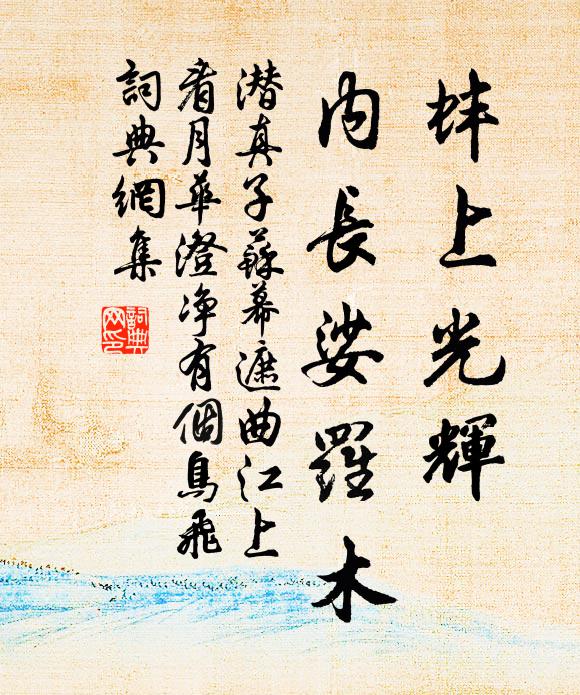 蚌上光輝
内長娑羅木
潜真子蘇幕遮曲江上
看月華澄净有個鳥飛
詞典網集
詞典
网印